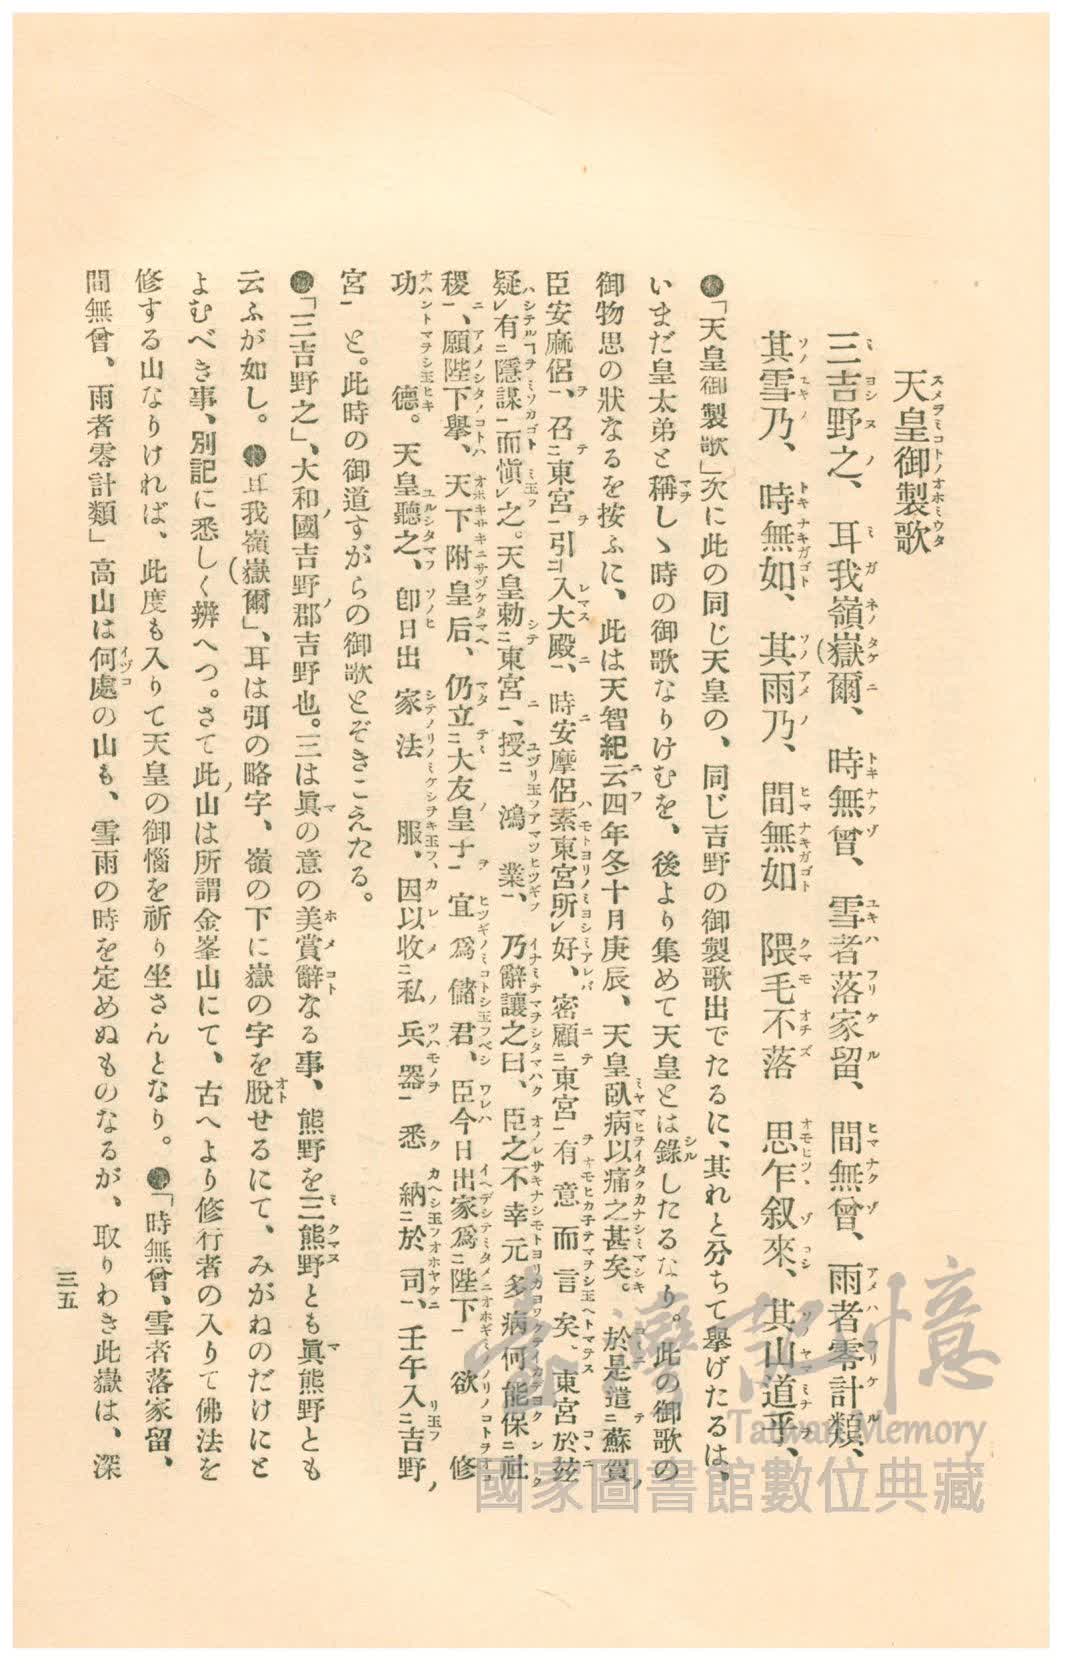 天皇御製歌
三吉野之、耳我嶺(嶽爾、時無曾、雪者落家留、間無曾、雨者零計類、
其雪乃、時無如、其雨乃、間無如 隈毛不落 思乍叙來、其山道乎、
「天皇御製歌」次に此の同じ天皇の、同じ吉野の御製歌出でたるに、其れと分ちて擧げたるは、
いまだ皇太弟と稱しゝ時の御歌なりけむを、後より集めて天皇とは錄したるなり。此の御歌の
御物思の狀なるを按ふに、此は天智紀云四年冬十月庚辰、天皇臥病以痛之甚矣。於是遣ニ蘇賀
臣安麻侶一、召ニ東宮一引ニ入大殿一、時安摩侶素東宮所レ好、密顧ニ東宮一有意而言矣。東宮於玆
疑レ有ニ隱謀一而愼レ之。天皇勅ニ東宮一、授ニ鴻業一、乃辭讓之曰、臣之不幸元多病何能保ニ社
稷一、願陛下擧、天下附皇后、仍立ニ大友皇子一宜爲儲君、臣今日出家爲ニ陛下一欲修
功德。天皇聽之、卽日出家法服、因以收ニ私兵器一悉納ニ於司一、壬午入ニ吉野
宮一と。此時の御道すがらの御歌とぞきこえたる。
「三吉野之」、大和國吉野郡吉野也。三は眞の意の美賞辭なる事、熊野を三熊野とも眞熊野とも
云ふが如し。耳我嶺(嶽爾」、耳は弭の略字、嶺の下に嶽の字を脫せるにて、みがねのだけにと
よむべき事、別記に悉しく辨へつ。さて此山は所謂金峯山にて、古へより修行者の入りて佛法を
修する山なりければ、此度も入りて天皇の御惱を祈り坐さんとなり。「時無曾、雪者落家留、
間無曾、雨者零計類」高山は何處の山も、雪雨の時を定めぬものなるが、取りわき此嶽は、深
三五
臺灣記憶
Taiwan Memory
國家圖書館數位典藏